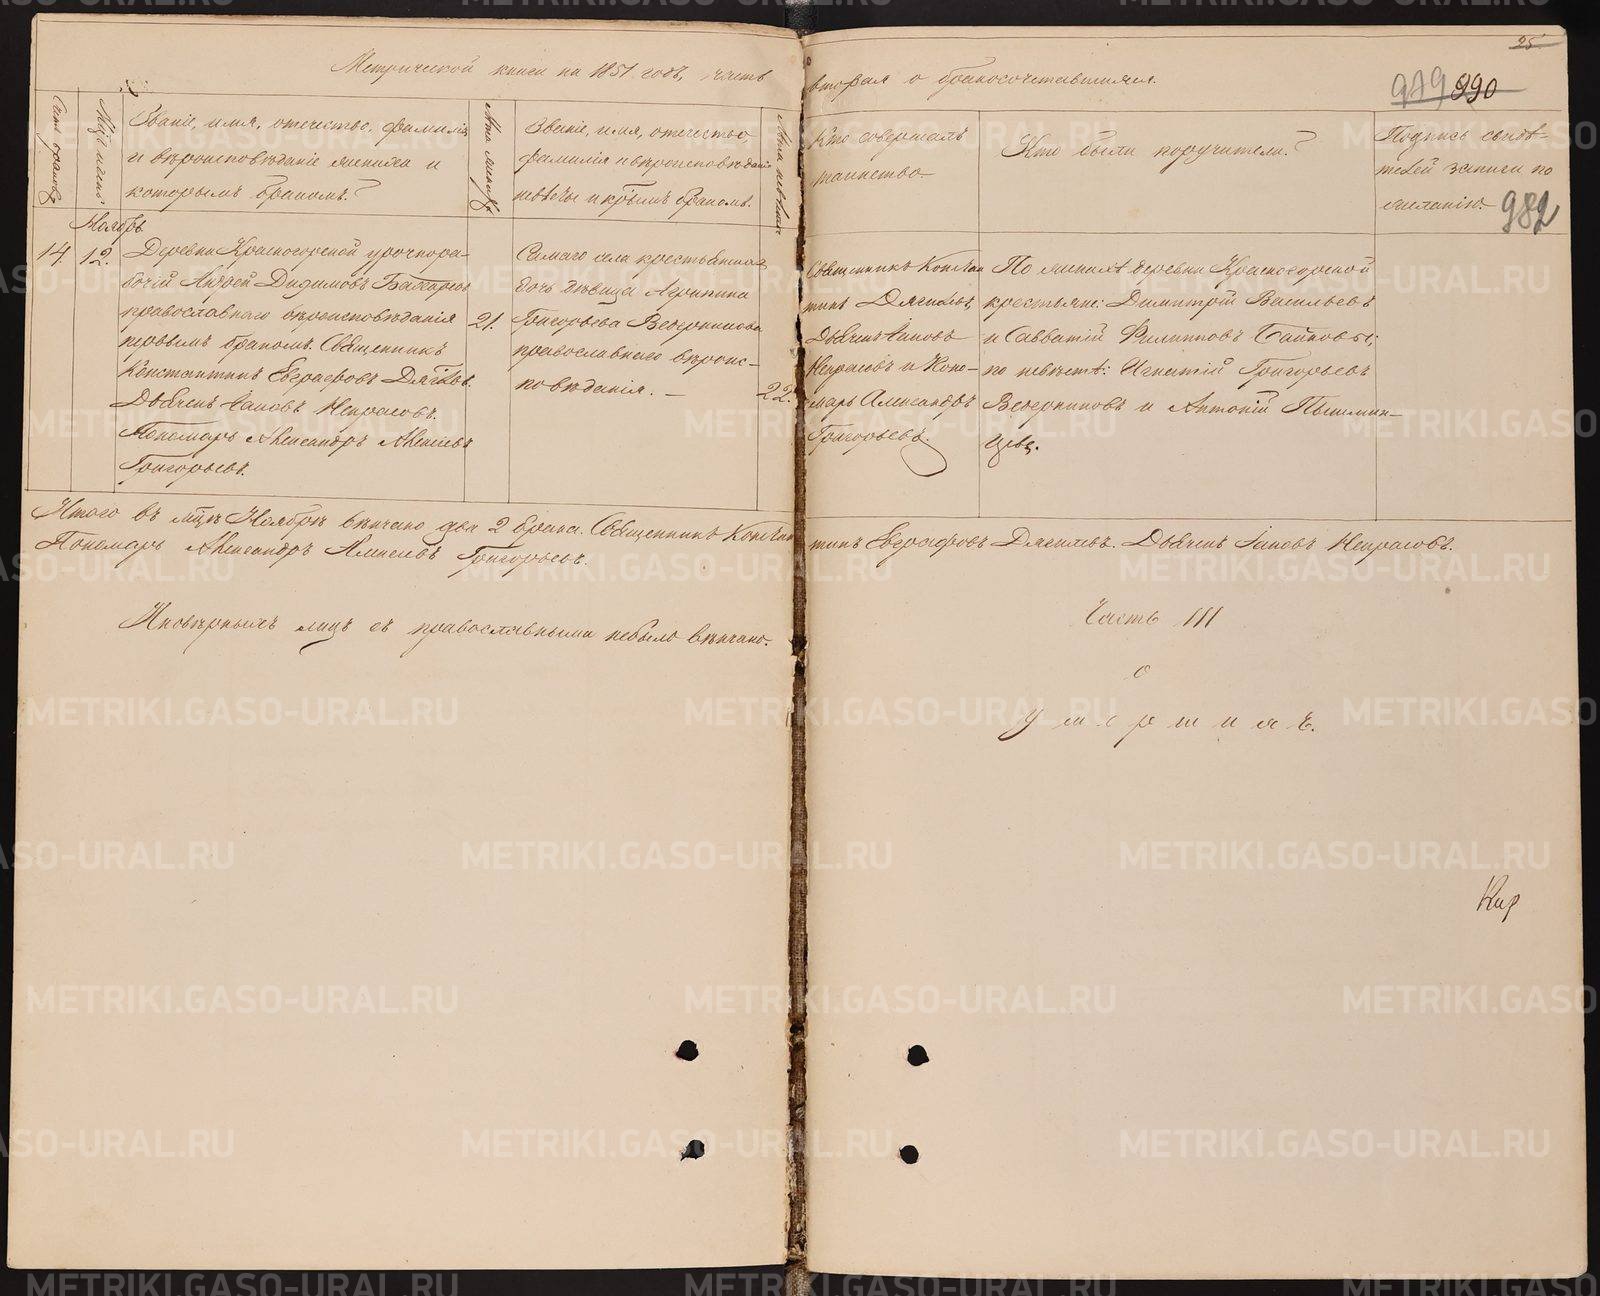 Метрической книги на 1851 годъ, часть вторая о бракосочетавшихся.
25
979 990
982
Счетъ браковъ
Мѣсяцъ и день
Званіе, имя, отечество, фамилія
и вѣроисповѣданіе жениха и
которымъ бракомъ?
Лѣта жениха
Званіе, имя, отечество,
фамилія и вѣроисповѣданіе
невѣсты и котрымъ бракомъ.
Лѣта невѣсты
Кто совершалъ
таинство
Кто были поручители?
Подпись свидѣ-
телей записи по
желанію.
Ноябрь
14. 12.
Деревни Красногорской урочнора-
бочій Андрей Дидимовъ
православнаго вѣроисповѣданія
первымъ бракомъ. Священникъ
Константинъ Евграфовъ Дягилевъ.
Дьячекъ Іаковъ Некрасовъ.
Пономарь Александръ Алексѣевъ
Григорьевъ.
21.
Самаго села крестьянская
дочь дѣвица Агрипина
Григорьева Ведерникова
православнаго вѣроис-
повѣданія. —
22.
Священникъ Констан
тинъ Дягилевъ,
Дьячекъ Іаковъ
Некрасовъ и Поно-
марь Александръ
Григорьевъ.
По женихѣ деревни Красногорской
крестьяне: Димитрій Васильевъ
и Савватій Филипповъ Байновы;
по невѣстѣ: Игнатій Григорьевъ
Ведерниковъ и Антоній Пышмин-
цевъ.
Итого въ мцѣ Ноябрѣ вѣнчано два 2 брака. Священникъ Констан тинъ Евграфовъ Дягилевъ. Дьячекъ Іаковъ Некрасовъ.
Пономарь Александръ Алексѣевъ Григорьевъ.
Иновѣрныхъ лицъ съ православными небыло вѣнчано.
Часть III
о
умершихъ.
Кир
METRIKI.GASO-URAL.RU